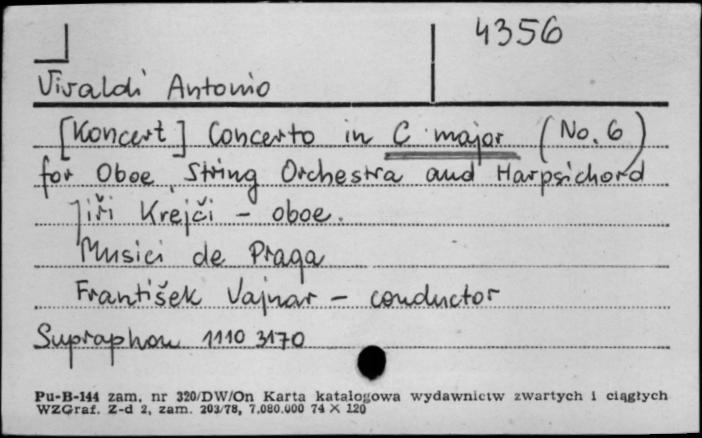 4356
Vivaldi Antonio
[Koncert] Concerto in C major (No. 6)
for Oboe, String Orchestra and Harpsichord
Jiři Krejči - oboe.
Musici de Praga
František Vajnar - conductor
Supraphon 1110 3170
Pu-B-144 zam. nr 320/DW/On Karta katalogowa wydawnictw zwartych i ciągłych
WZGraf. Z-d 2, zam. 203/78, 7.080.000 74 × 120